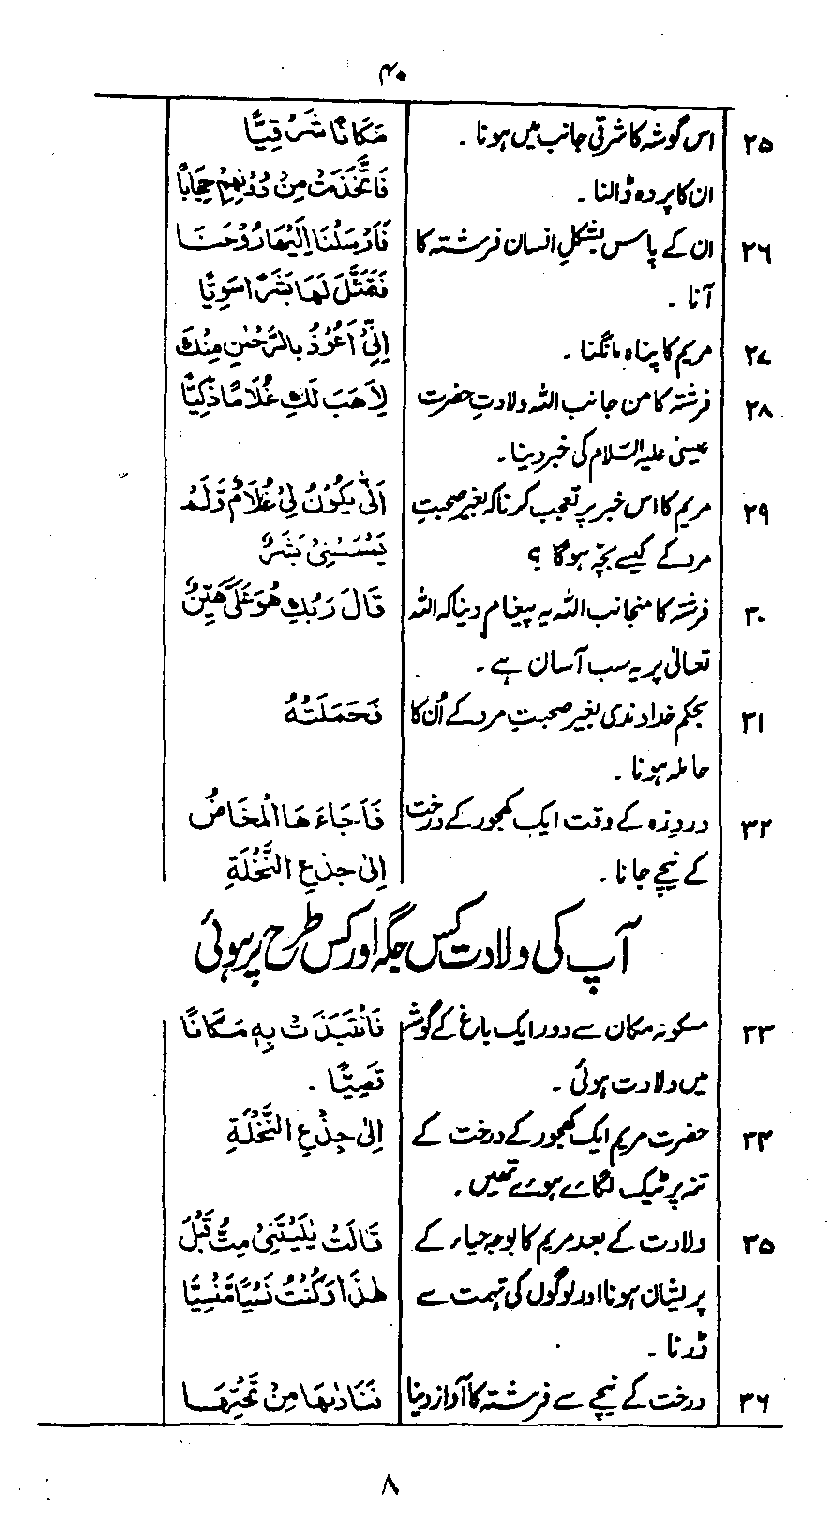 ۴۰
۲۵ اس گوشہ کا شرقی جانب میں ہونا ۔ مَكَانًا شَرْقِيًّا
ان کا پردہ ڈالنا ۔ فَاتَّخَذَتْ مِنْ دُوْنِهِمْ حِجَابًا
۲۶ ان کے پاس بشکلِ انسان فرشتہ کا فَاَرْسَلْنَا اِلَيْهَا رُوْحَنَا
آنا ۔ فَتَمَثَّلَ لَهَا بَشَرًا سَوِيًّا
۲۷ مریم کا پناہ مانگنا ۔ اِنِّيْ اَعُوْذُ بِالرَّحْمٰنِ مِنْكَ
۲۸ فرشتہ کا من جانب اللہ ولادتِ حضرت لِاَهَبَ لَكِ غُلَامًا زَكِيًّا
عیسیٰ علیہ السلام کی خبر دینا ۔
۲۹ مریم کا اس خبر پر تعجب کرنا کہ بغیر صحبتِ اَنّٰى يَكُوْنُ لِيْ غُلَامٌ وَّلَمْ
مرد کے کیسے بچّہ ہوگا ؟ يَمْسَسْنِيْ بَشَرٌ
۳۰ فرشتہ کا منجانب اللہ یہ پیغام دینا کہ اللہ قَالَ رَبُّكِ هُوَ عَلَيَّ هَيِّنٌ
تعالیٰ پر یہ سب آسان ہے ۔
۳۱ بحکم خداوندی بغیر صحبتِ مرد کے اُن کا فَحَمَلَتْهُ
حاملہ ہونا ۔
۳۲ دردِزہ کے وقت ایک کھجور کے درخت فَاَجَاءَهَا الْمَخَاضُ
کے نیچے جانا ۔ اِلٰى جِذْعِ النَّخْلَةِ
آپ کی ولادت کس جگہ اور کس طرح پر ہوئی
۳۳ مسکونہ مکان سے دور ایک باغ کے گوشہ فَانْتَبَذَتْ بِهٖ مَكَانًا
میں ولادت ہوئی ۔ قَصِيًّا ۔
۳۴ حضرت مریم ایک کھجور کے درخت کے اِلٰى جِذْعِ النَّخْلَةِ
تنہ پر ٹیک لگائے ہوئے تھیں ۔
۳۵ ولادت کے بعد مریم کا بوجہ حیاء کے قَالَتْ يٰلَيْتَنِيْ مِتُّ قَبْلَ
پریشان ہونا اور لوگوں کی تہمت سے هٰذَا وَكُنْتُ نَسْيًا مَّنْسِيًّا
ڈرنا ۔
۳۶ درخت کے نیچے سے فرشتہ کا آواز دینا فَنَادٰىهَا مِنْ تَحْتِهَا
۸